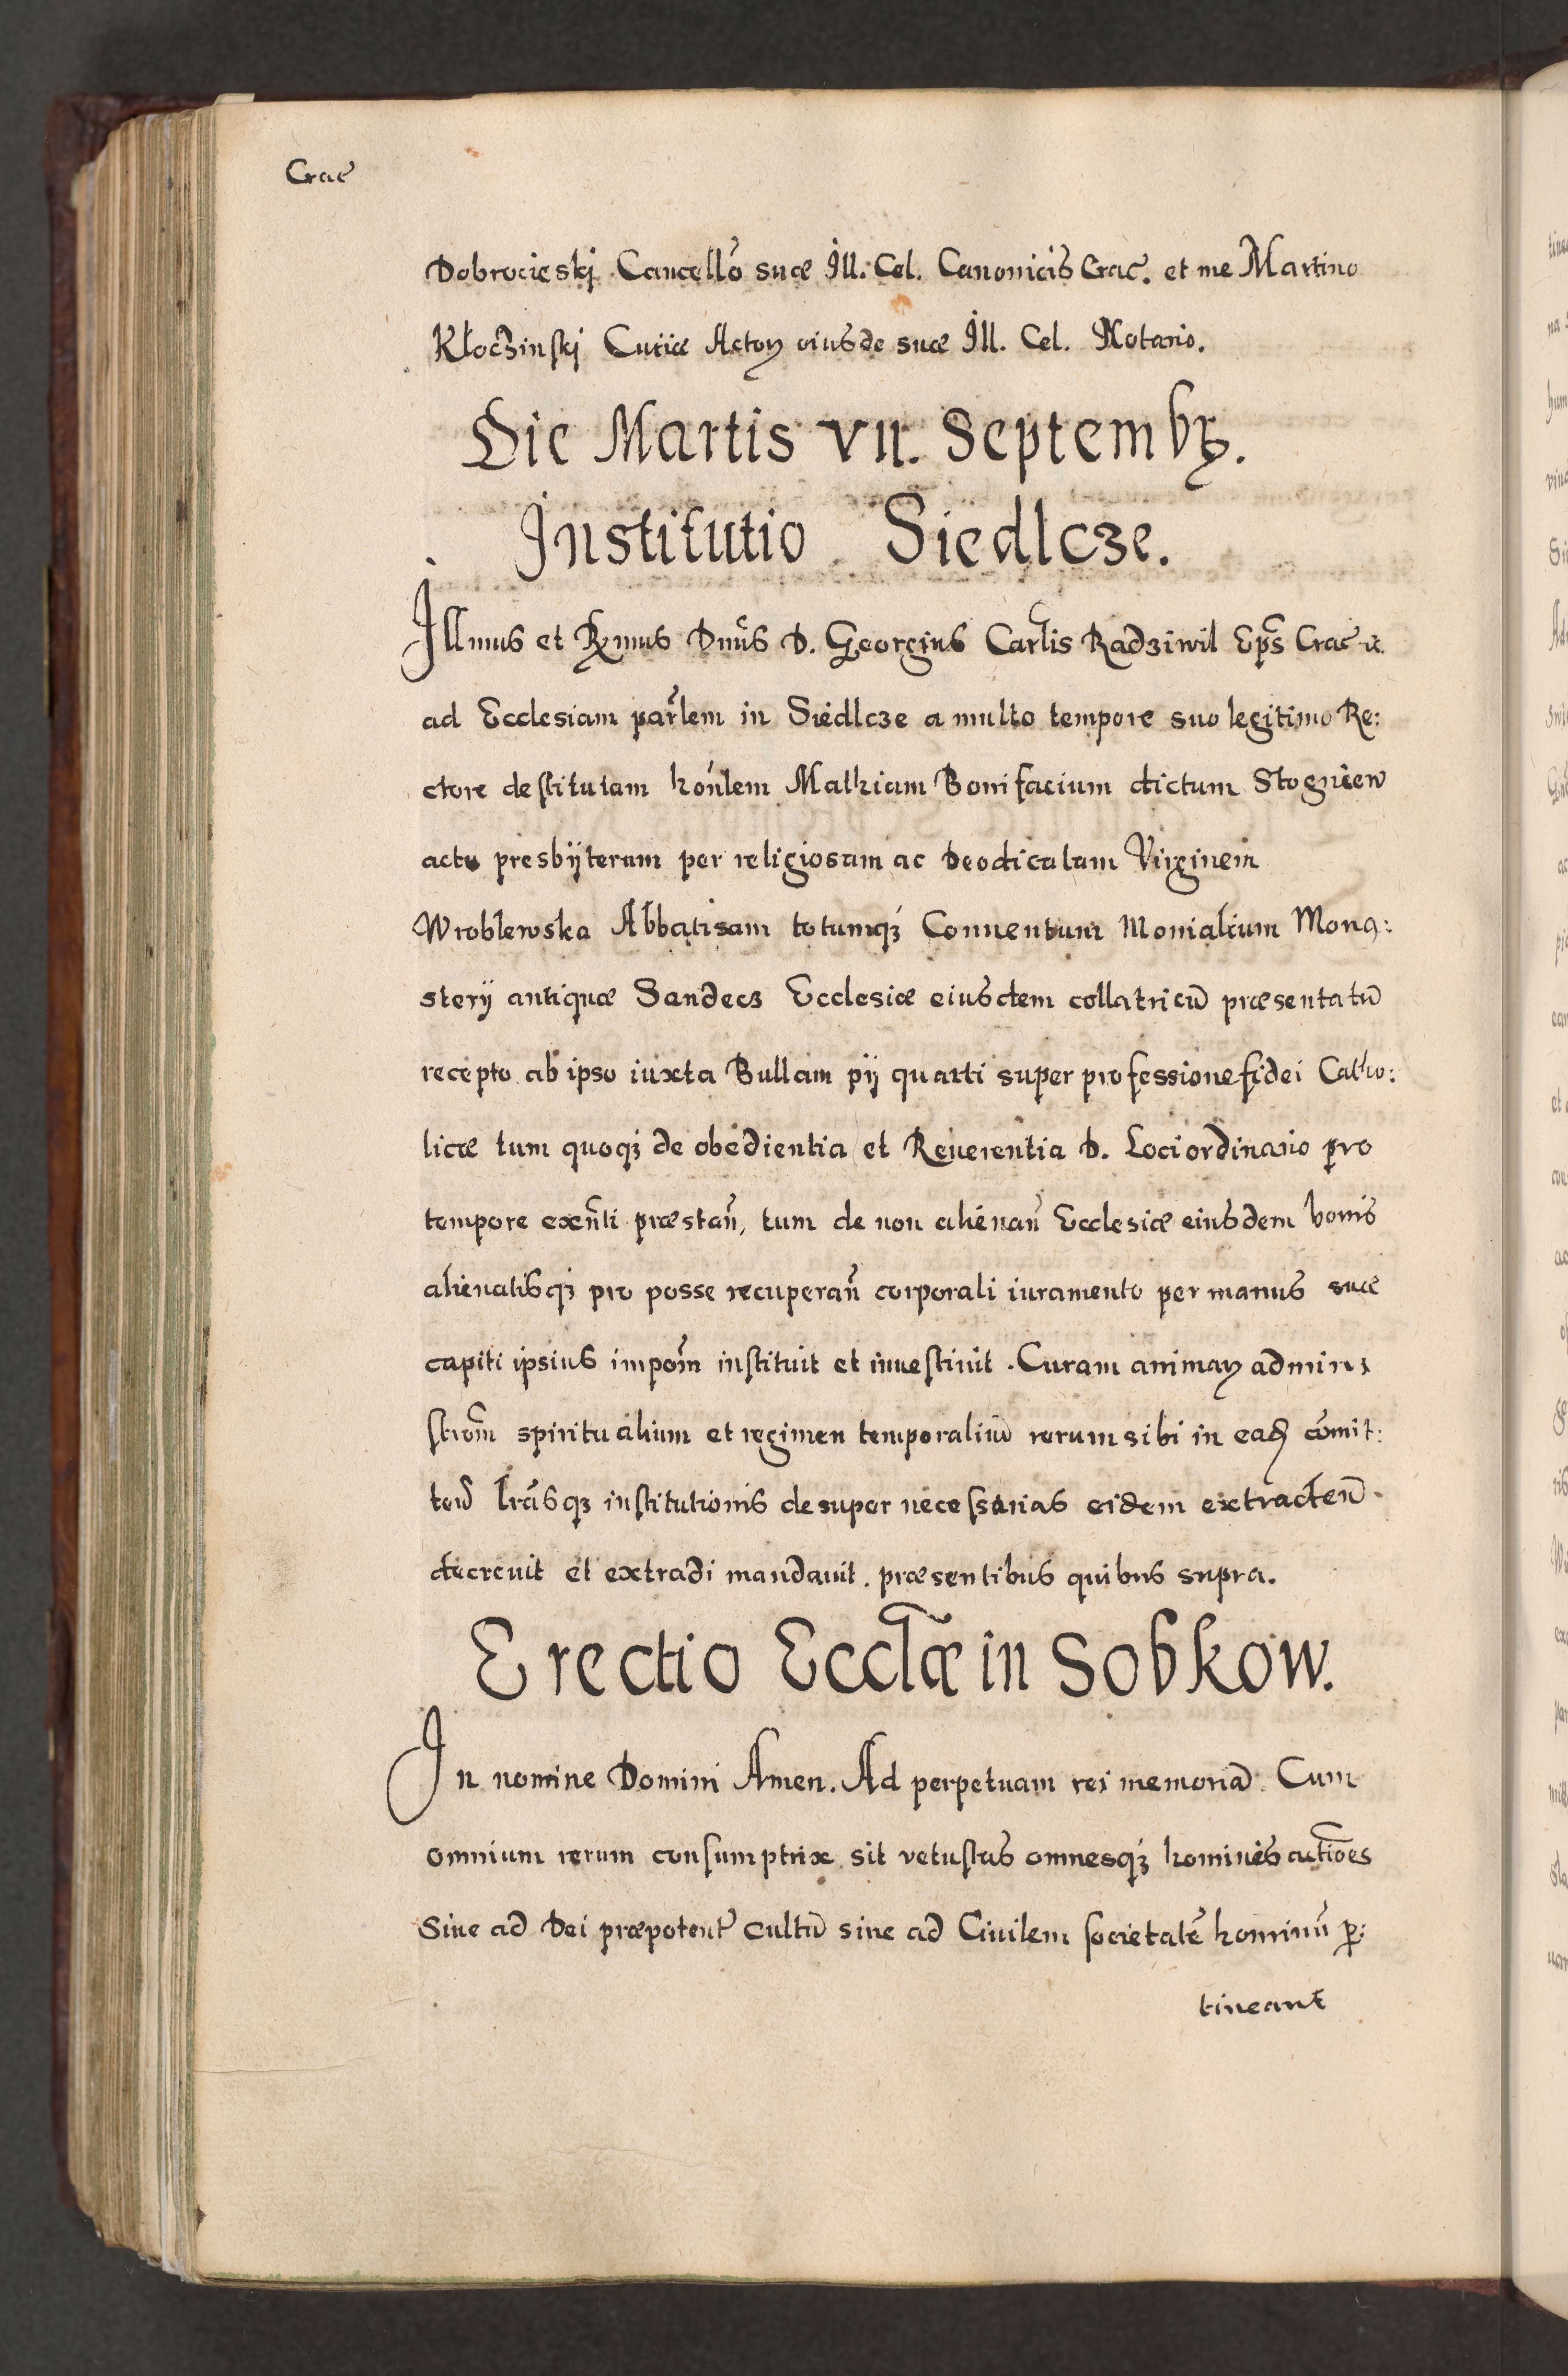 Crac̃
Dobrocieskj Cancellō suæ Ill. Cel. Canonicis Crac̃. et me Martino
Kłoczinskj Curiæ Actoꝝ eiusdē suæ Ill. Cel. Notario.
Die Martis VII. Septembꝶ.
Institutio Siedlcze.
Illmus et Rxmus Dnūs D. Georgius Carlis Radziwil Epūs Crac̃ ꝛc.
ad Ecclesiam par̃lem in Siedlcze a multo tempore suo legitimo Re:
ctore destitutam hoñlem Mathiam Bonifacium dictum Stogniew
actu presbÿterum per religiosam ac Deodicatam Virginem
Wroblewska Abbatisam totumqꝫ Conuentum Monialium Mona:
sterÿ antiquæ Sandecz Ecclesiæ eiusdem collatricū præsentatū
recepto ab ipso iuxta Bullam pÿ quarti super professione fidei Catho:
licæ tum quoqꝫ de obedientia et Reuerentia D. Loci ordinario pro
tempore exeñti præstañ, tum de non alienañ Ecclesiæ eiusdem bonis
alienatisqꝫ pro posse recuperañ corporali iuramento per manus suæ
capiti ipsius impom̃ instituit et inuestiuit. Curam animaꝝ admini:
strom̃ spiritualium et regimen temporaliū rerum sibi in eaꝺ com̃it:
teñ lrãsqꝫ institutionis desuper necessarias eidem extradeñ
decreuit et extradi mandauit. præsentibus quibus supra.
Erectio Eccl̃æ in Sobkow.
In nomine Domini Amen. Ad perpetuam rei memoriā. Cum
omnium rerum consumptrix sit vetustas omnesqꝫ hominēs actiões
Siue ad Dei præpotent̃ cultū siue ad Ciuilem societatē hominū ꝑ:
tineant